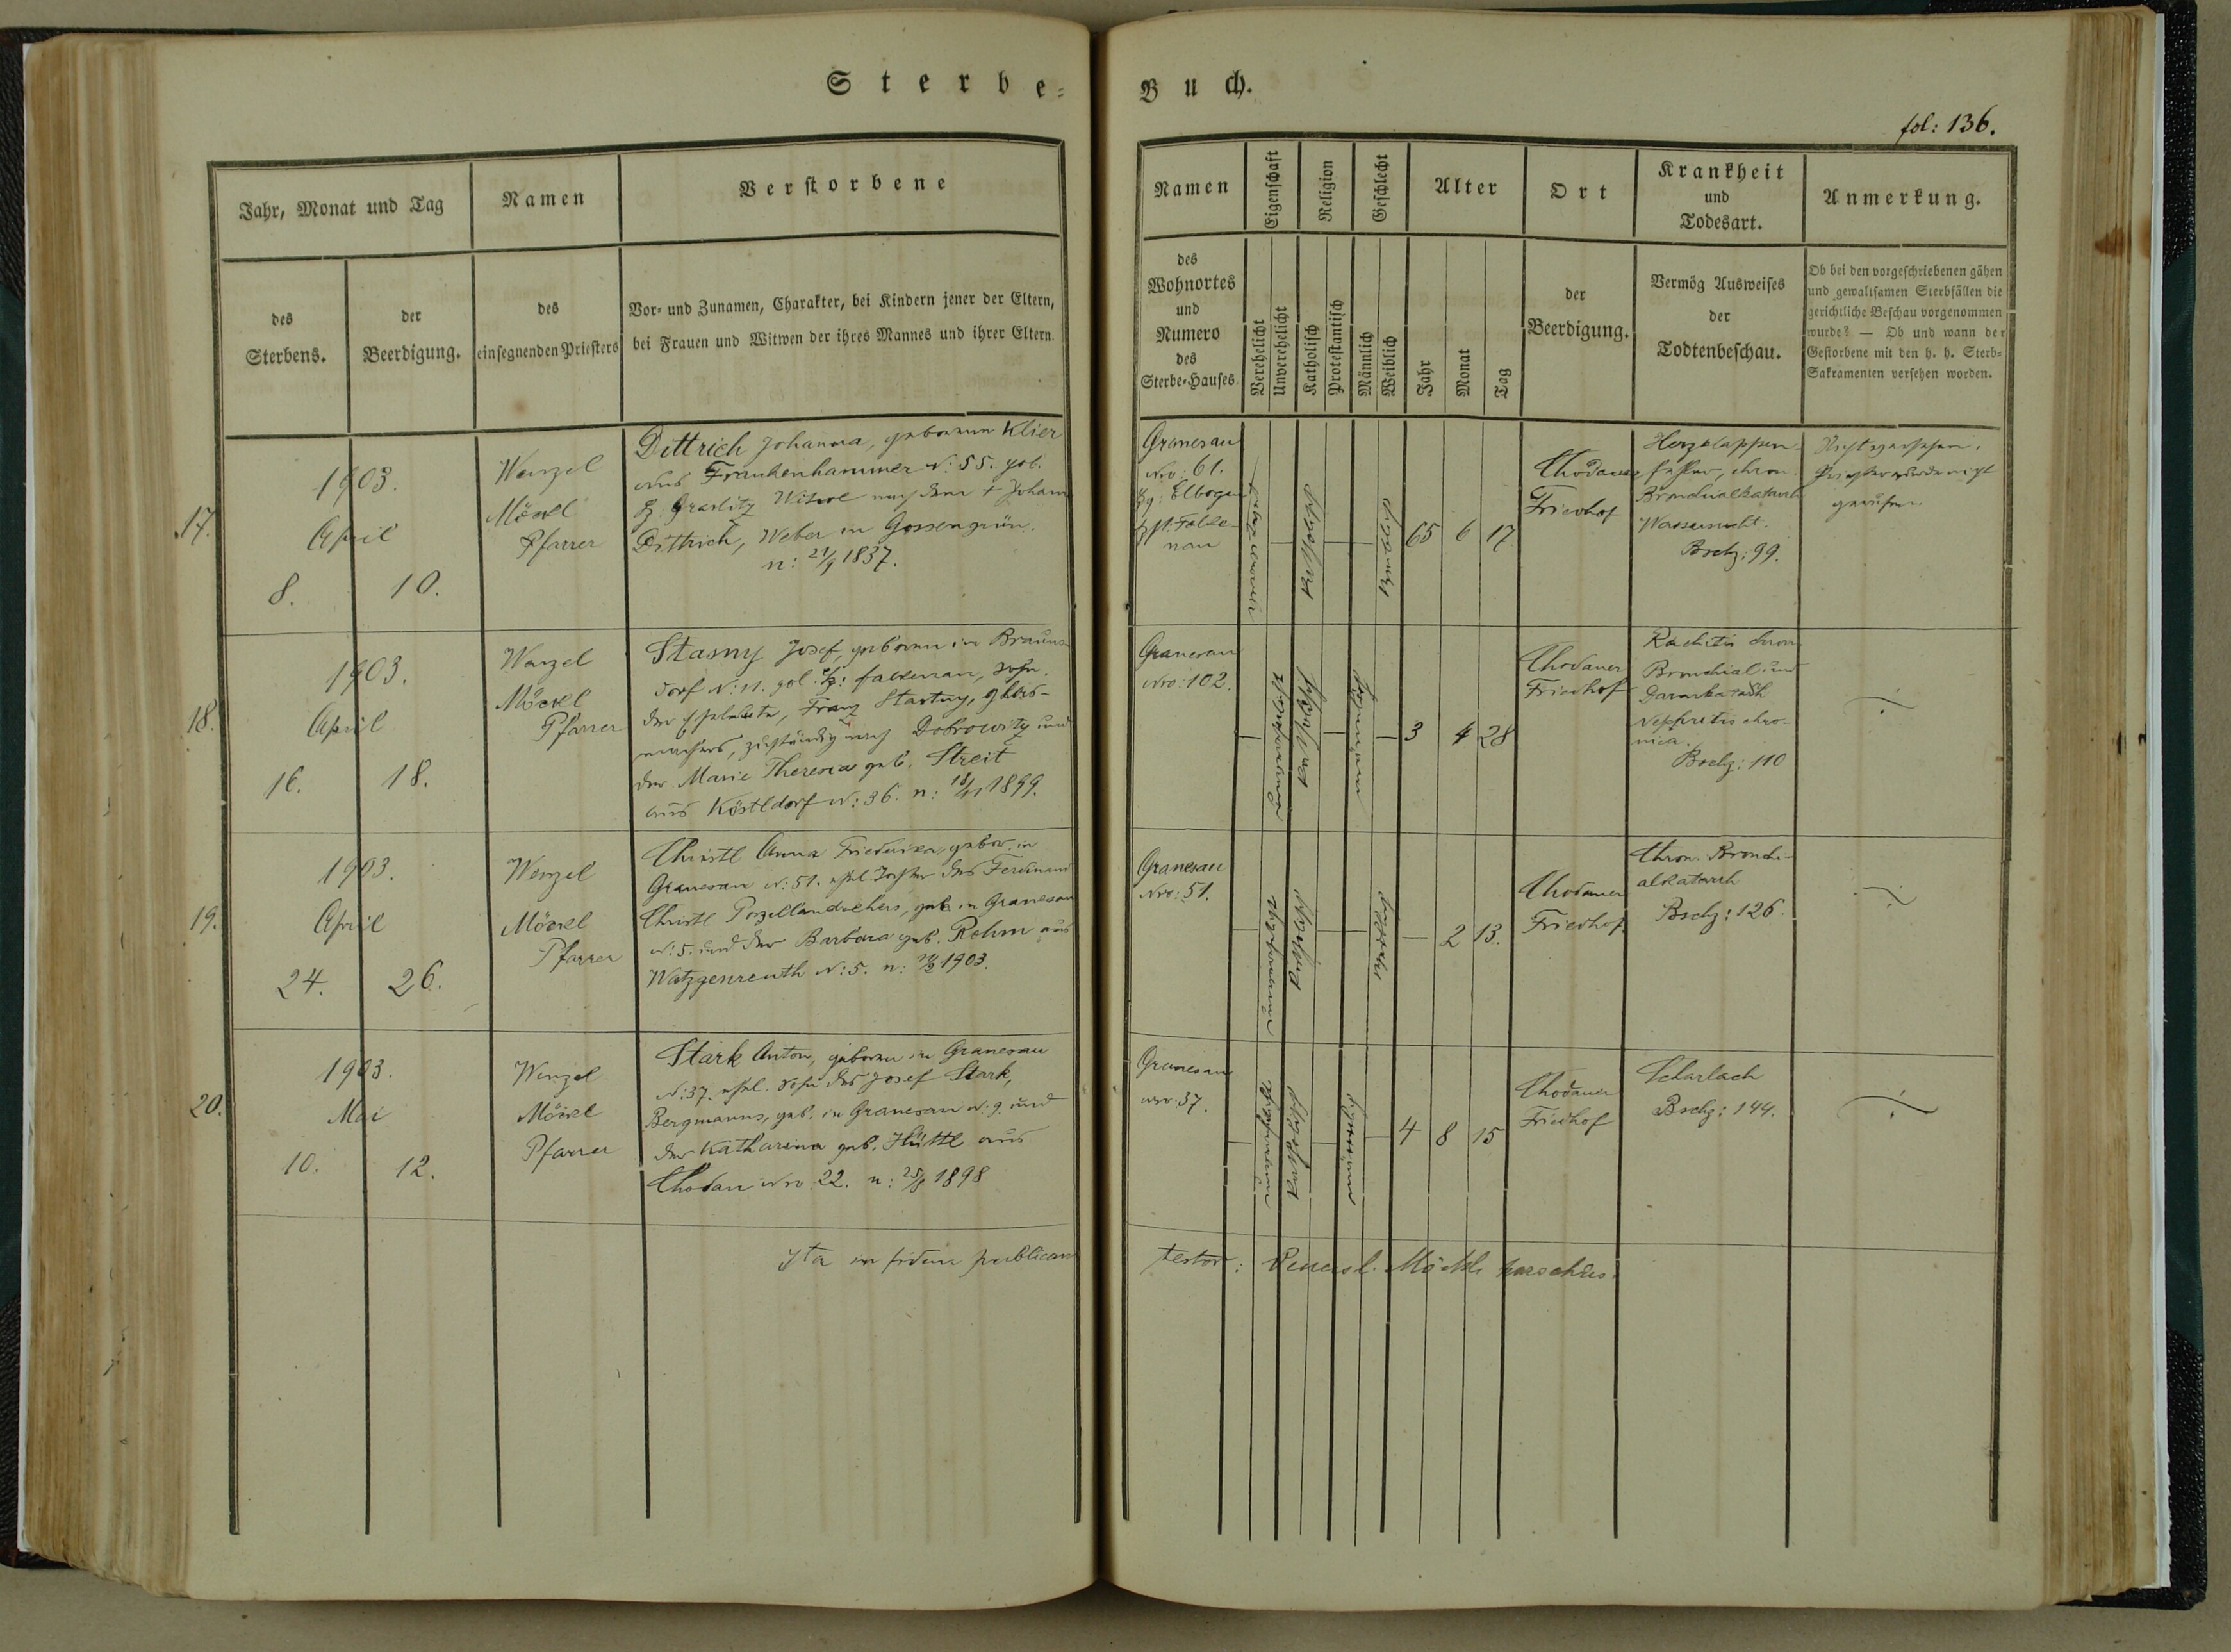 Sterbe-
Buch.
fol: 136.
Jahr, Monat und Tag
Namen
Verstorbene
des Sterbens.
der Beerdigung.
des einsegnenden Priesters
Vor- und Zunamen, Charakter, bei Kindern jener der Eltern,
bei Frauen und Witwen der ihres Mannes und ihrer Eltern
Namen
Eigenschaft
Religion
Geschlecht
Alter
Ort
Krankheit
und
Todesart.
Anmerkung.
des
Wohnortes
und
Numero
des
Sterbe-Hauses
Verehelicht
Unverehelicht
Katholisch
Protestantisch
Männlich
Weiblich
Jahr
Monat
Tag
der
Beerdigung.
Vermög Ausweises
der
Todtenbeschau.
Ob bei den vorgeschriebenen gähen
und gewaltsamen Sterbfällen die
gerichtliche Beschau vorgenommen
wurde? — Ob und wann der
Gestorbene mit den h. h. Sterb-
Sakramenten versehen worden.
17.
1903.
April
8.
10.
Wenzel
Möckl
Pfarrer
Dittrich Johanna, geborene Klier
aus Frankenhammer N: 55. pol.
Bz. Graslitz Witwe nach dem + Johann
Dittrich, Weber in Gossengrün.
n: 21/9 1837.
Granesau
Nro: 61.
Bz: Elbogen
Falke-
nau
katholisch
weiblich
65
6
17
Chodauer
Friedhof
Herzklappen-
fehler, chron.
Bronchialkatarrh
Wassersucht.
Bschz: 99.
Nicht versehen.
Priester wurde nicht
gerufen.
18.
1903.
April
16.
18.
Wenzel
Möckl
Pfarrer
Stasny Josef, geboren in Brauns-
dorf N: 11. pol. Bz: Falkenau, Sohn
der Eheleute, Franz Stastny, Glas-
machers, zuständig nach Dobrowitz und
der Marie Theresia geb. Streit
aus Köstldorf N: 36. n: 18/11 1899.
Granesau
Nro: 102.
katholisch
3
4
28
Chodauer
Friedhof
Rachitis chron
Bronchial und
Darmkatarrh
Nephritis chro-
nica.
Bschz: 110
19.
1903.
April
24.
26.
Wenzel
Möckl
Pfarrer
Christl Anna Friederika, gebor. in
Granesau N: 51. ehel. Tochter des Ferdinand
Christl Porzellandrehers, geb. in Granesau
N: 5. und der Barbara geb. Rehm aus
Watzgenreuth N: 5. n: 1903.
Granesau
Nro: 51.
katholisch
weiblich
2
13.
Chodauer
Friedhof.
Chron. Bronchi-
alkatarrh
Bschz: 126.
20.
1903.
Mai
10.
12.
Wenzel
Möckl
Pfarrer
Stark Anton, geboren in Granesau
N: 37. ehel. Sohn des Josef Stark,
Bergmanns, geb. in Granesau N: 9. und
der Katharina geb. Hüttl aus
Chodau Nro 22. n: 25/8 1898
Granesau
Nro: 37.
katholisch
4
8
15
Chodauer
Friedhof
Scharlach
Bschz: 144.
Ita in fidem publicam
testor: Wencesl. Möckl parochus.